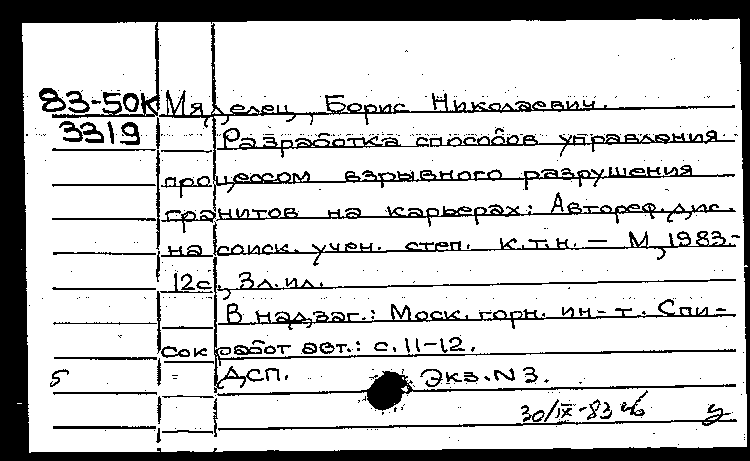 83-50К Мяделец, Борис Николаевич.
3319 Разработка способов управления
процессом взрывного разрушения
гранитов на карьерах: Автореф. дис.
на соиск. учен. степ. к.т.н. — М, 1983.-
12с., 3л.ил.
В надзаг.: Моск. горн. ин-т. Спи-
сок работ авт.: с. 11-12.
5 ДСП. Экз. N 3.
30/IX-83